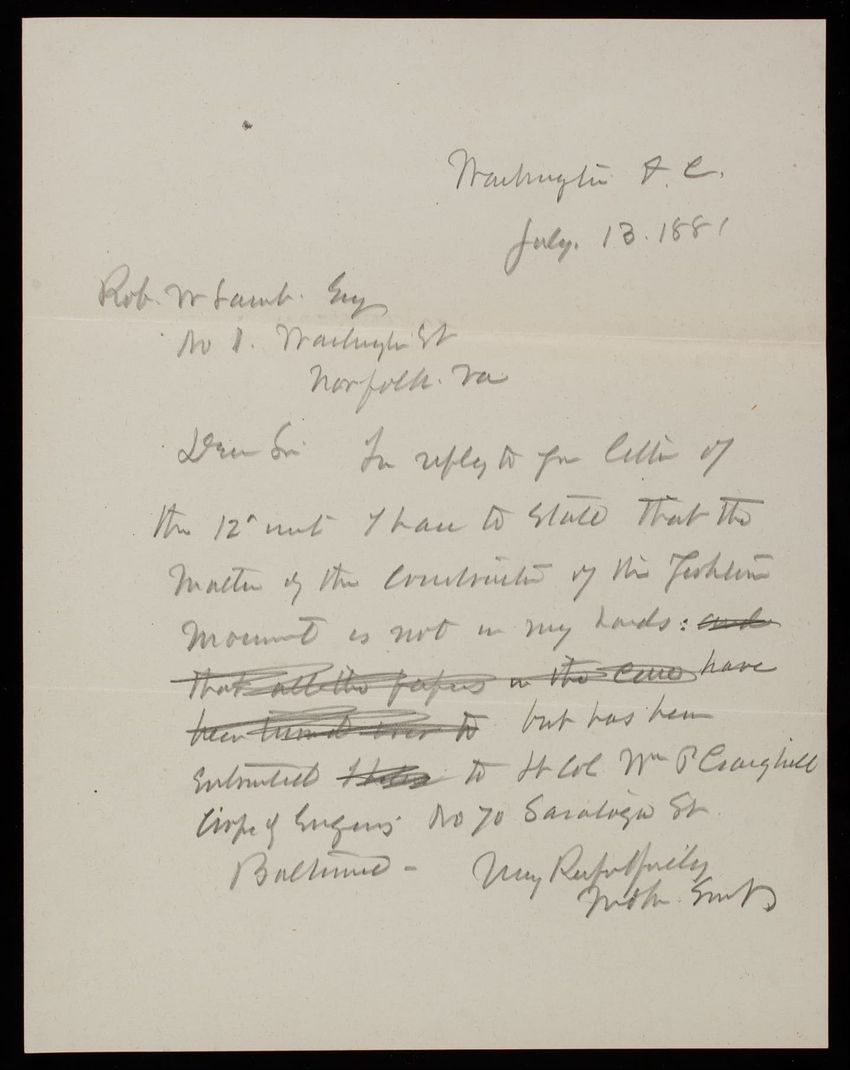 Washington D. C.
July. 13. 1881
Rob. W Lamb. Esq
No 1. Washington St
Norfolk. Va
Dear Sir In reply to your letter of
the 12" inst I have to state that the
matter of the construction of the Yorktown
Monument is not in my hands: and
that all the papers in the case have
been turned over to but has been
entrusted to Lt Col Wm P Craighill
Corps of Engineers No 70 Saratoga St.
Baltimore - Very Respectfully